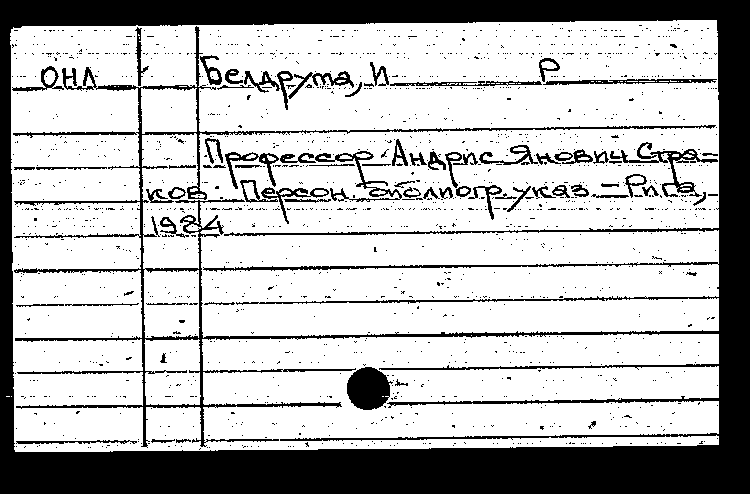 ОНЛ Белдрута, И Р
Профессор Андрис Янович Стра-
ков. Персон. библиогр. указ. – Рига,
1984